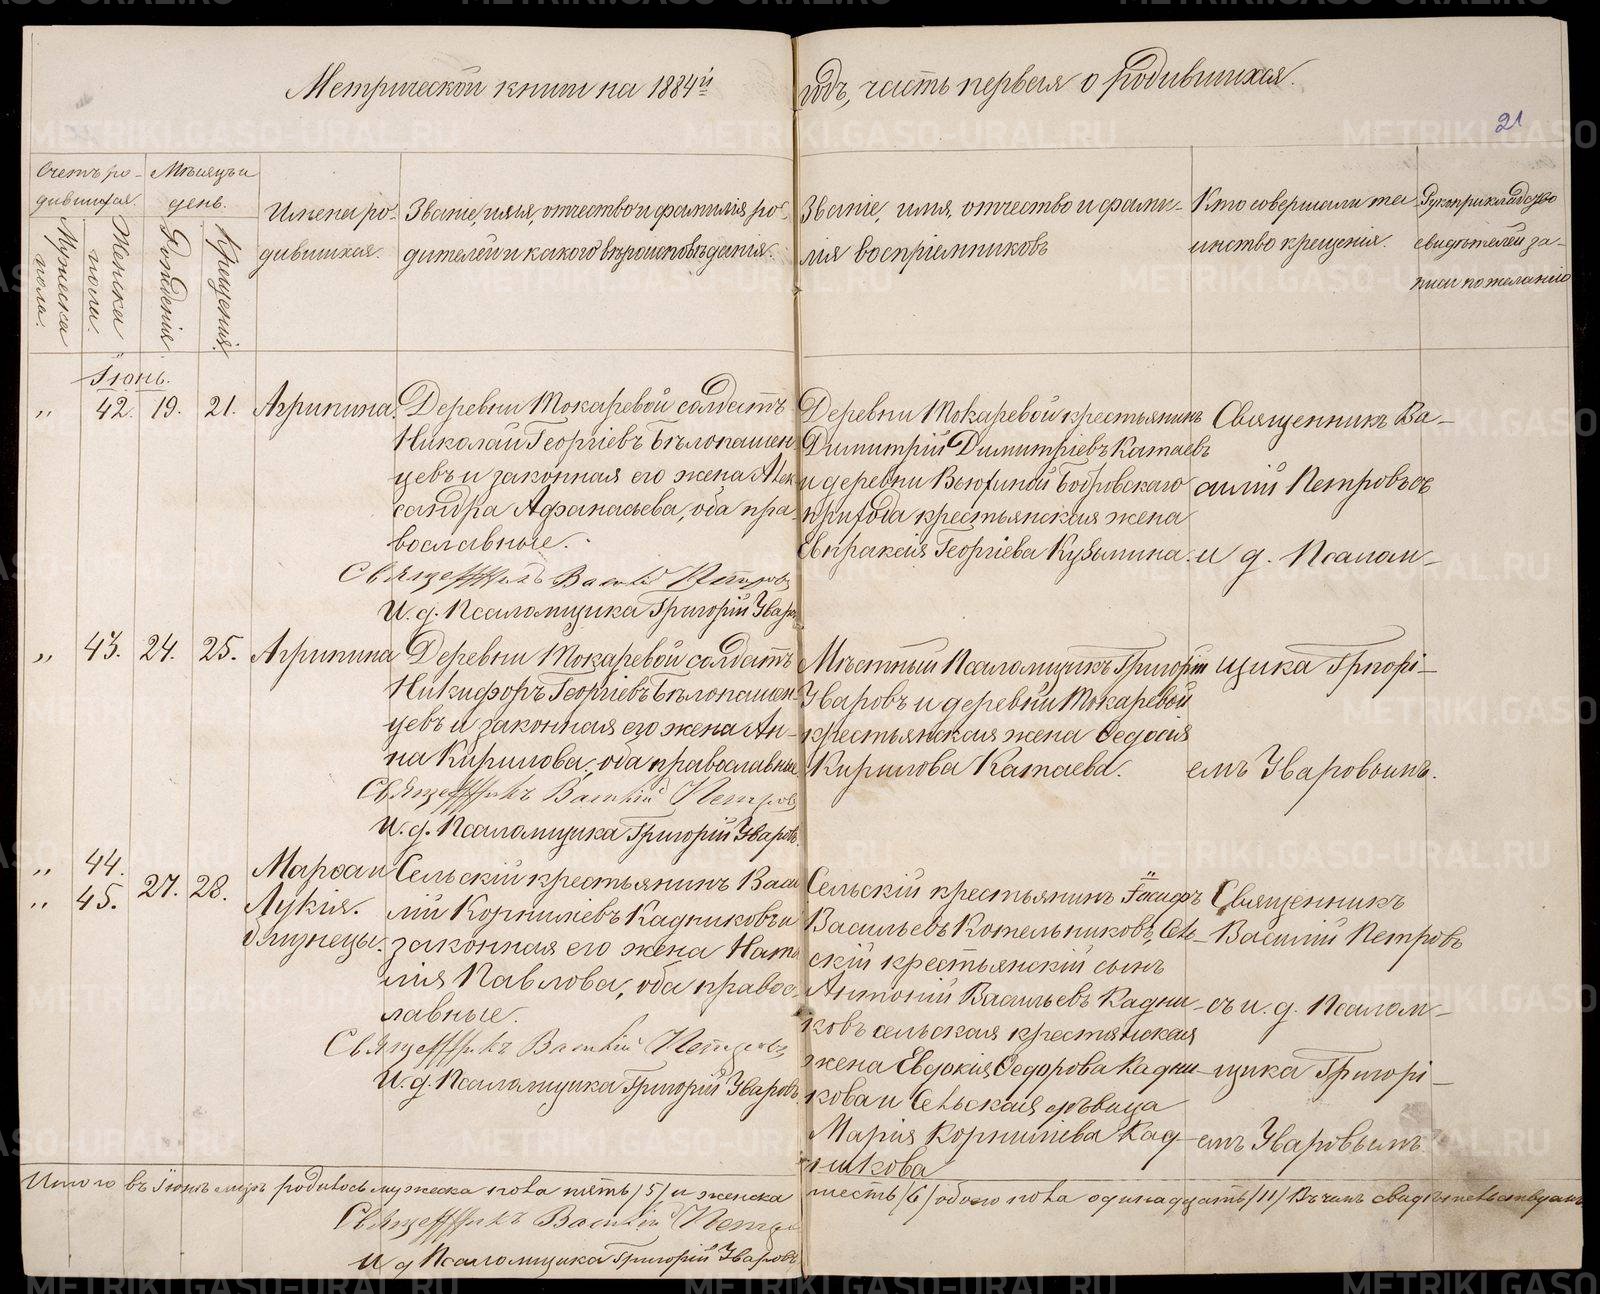 Метрической книги на 1884й годъ, часть первая о родившихся.
21
Счетъ ро-
дившихся.
Мужеска
пола.
Женска
пола.
Мѣсяцъ и
день.
Рожденія
Крещенія.
Имена ро-
дившихся.
Званіе, имя, отчество и фамилія ро-
дителей и какого вѣроисповѣданія.
Званіе, имя, отчество и фами-
лія воспріемниковъ
Кто совершалъ та-
инство крещенія.
Рукоприкладство
свидѣтелей за-
писи по желанію
Іюнь.
„ 42. 19. 21. Агрипина.
Деревни Токаревой солдатъ
Николай Георгіевъ Бѣлопашен-
цевъ и законная его жена Алек-
сандра Афанасьева, оба пра-
вославные.
Священникъ Василій Петровъ
И. д. Псаломщика Григорій Уваровъ
Деревни Токаревой крестьянинъ
Димитрій Димитріевъ Катаевъ
и деревни Вьюхиной Бобровскаго
прихода крестьянская жена
Евпраксія Георгіева Кузьмина.
Священникъ Ва-
силій Петровъ съ
и. д. Псалом-
„ 43. 24. 25. Агрипина
Деревни Токаревой солдатъ
Никифоръ Георгіевъ Бѣлопашен-
цевъ и законная его жена Ан-
на Кирилова, оба православные
Священникъ Василій Петровъ
И. д. Псаломщика Григорій Уваровъ.
Мѣстный Псаломщикъ Григорій
Уваровъ и деревни Токаревой
крестьянская жена Ѳедосія
Кирилова Катаева.
щика Григорі-
емъ Уваровымъ.
„ 44.
„ 45.
27. 28.
Марѳа и
Лукія.
близнецы.
Сельскій крестьянинъ Васи-
лій Корниліевъ Кадниковъ и
законная его жена Ната-
лія Павлова, оба правос-
лавные.
Священникъ Василій Петровъ
И. д. Псаломщика Григорій Уваровъ.
Сельскій крестьянинъ Іосифъ
Васильевъ Котельниковъ, Сель-
скій крестьянскій сынъ
Антоній Васильевъ Кадни-
ковъ сельская крестянская
жена Евдокія Ѳедорова Кадни-
кова и Сельская дѣвица
Марія Корниліева Кад-
никова
Священникъ
Василій Петровъ
съ и. д. Псалом-
щика Григорі-
емъ Уваровымъ
Итого въ Іюнѣ мцѣ родилось мужеска пола пять /5/ и женска шесть /6/ обоего пола одинадцать /11/ Въ чемъ свидѣтельствуемъ
Священникъ Василій Петровъ
И д Псаломщика Григорій Уваровъ.
METRIKI.GASO-URAL.RU